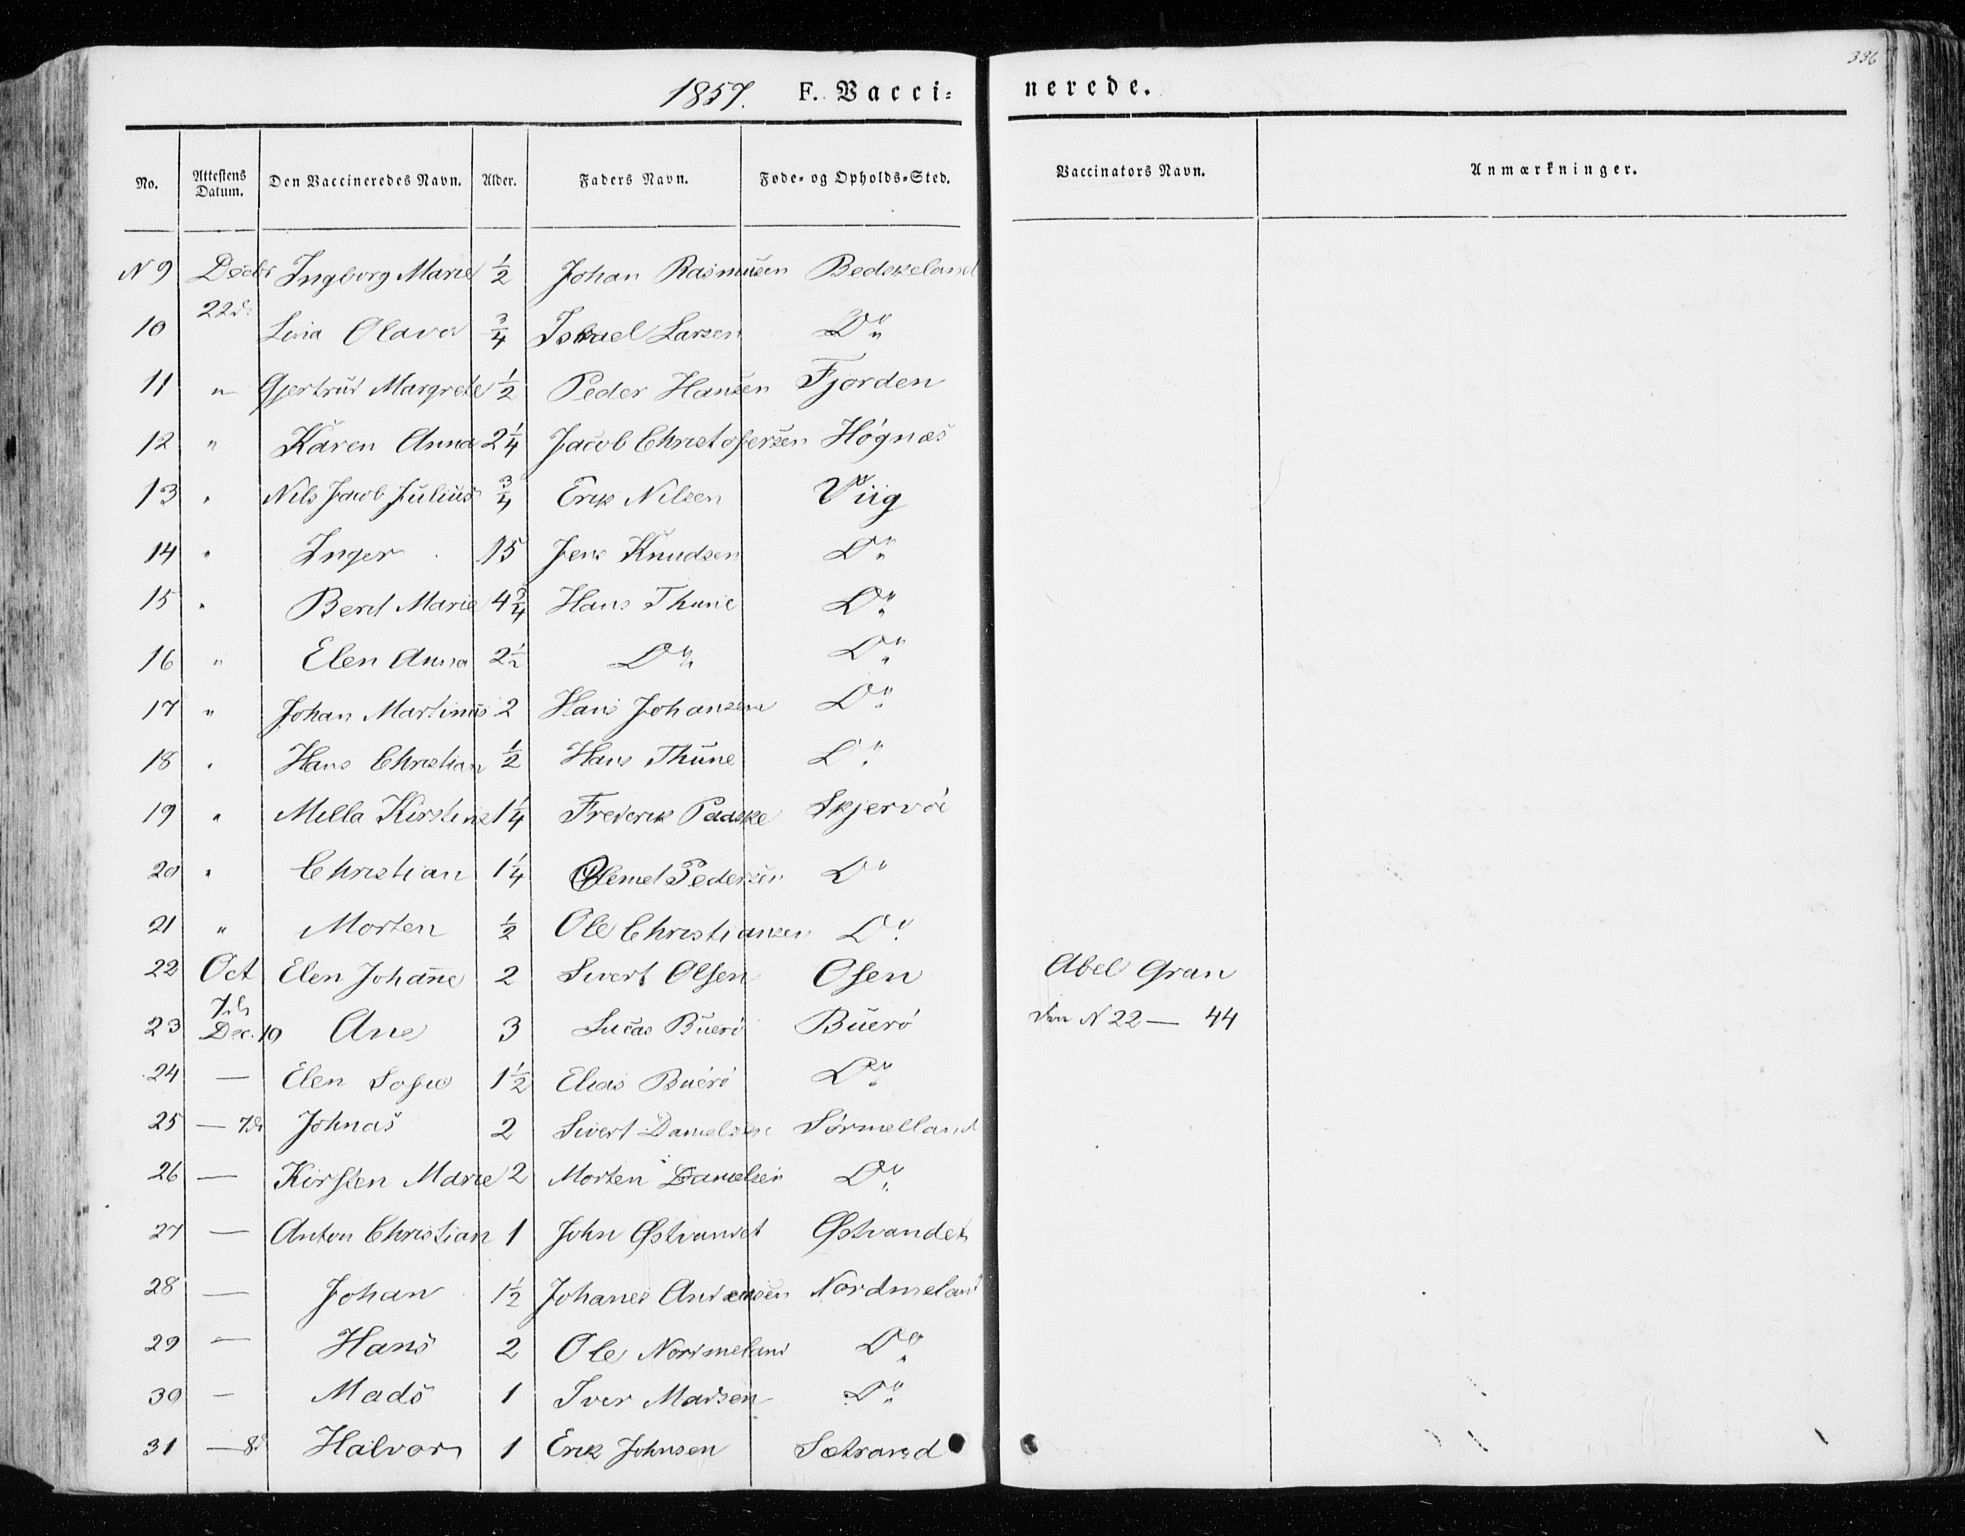 336
1857. F. Vacci= nerede.
No. Attestens Datum. Den Vaccineredes Navn. Alder. Faders Navn. Føde- og Opholds-Sted. Vaccinators Navn. Anmærkninger.
N 9 Decbr Ingborg Marie 1/2 Johan Rasmussen Bedskeland
10 22d: Lina Olava 3/4 Israel Larsen Do
11 " Gjertrud Margrete 1/2 Peder Hansen Fjorden
12 " Karen Anna 2 1/4 Jacob Christofersen Høgnæs
13 " Nils Jacob Julius 3/4 Erik Nilsen Viig
14 " Inger 15 Jens Knudsen Do
15 " Berit Marie 4 3/4 Hans Thune Do
16 " Elen Anna 2 1/2 Do Do
17 " Johan Martinus 2 Hans Johansen Do
18 " Hans Christian 1/2 Hans Thune Do
19 " Milla Kirstine 1 1/4 Frederik Paaske Skjervøe
20 " Christian 1 1/4 Pedersen Do
21 " Morten 1/2 Ole Christiansen Do
22 Oct Elen Johanne 2 Sivert Olsen Osen Abel Gran
23 7de Dec. 10 Ane 3 Lucas Buerø Buerø N 22 — 44
24 — Elen Sofie 1 1/2 Elias Buerø Do
25 — 7de Johnas 2 Sivert Danielsen Sørmelland
26 — Kirsten Marie 2 Morten Danielsen Do
27 — Anton Christian 1 John Østvandet Østvandet
28 — Johan 1 1/2 Johanes Andersen Nordmeland
29 — Hans 2 Ole Nordmeland Do
30 — Mads 1 Iver Madsen Do
31 — 8d Halvor 1 Erik Johnsen Setrand